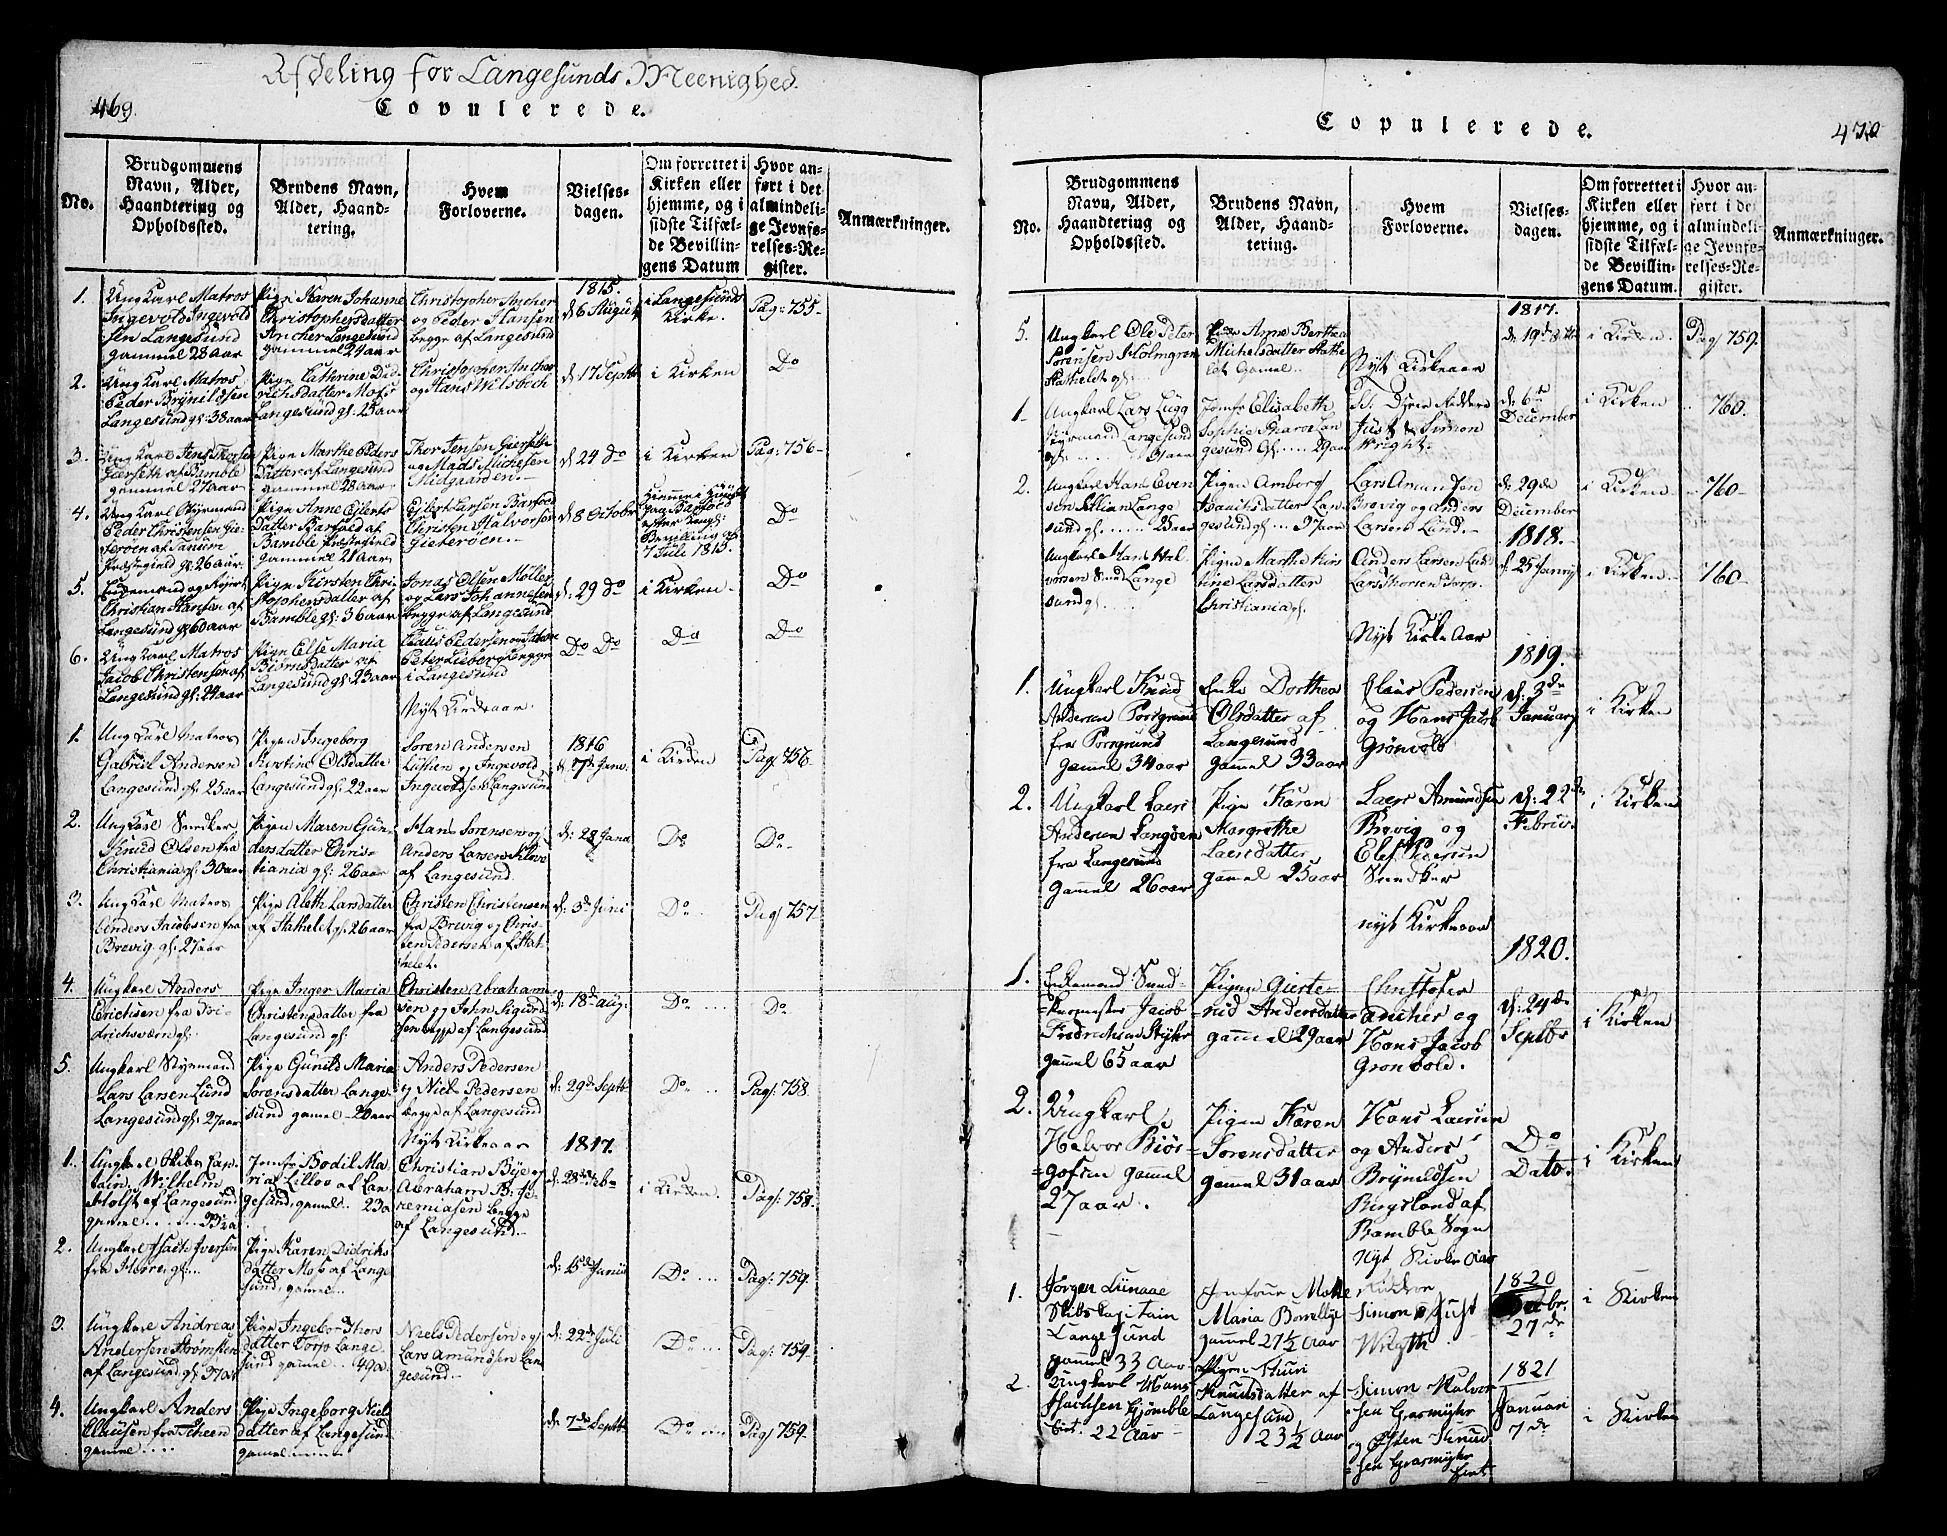 Afdeling for Langesunds Meenighed.
469.
Copulerede.
No.
Brudgommens
Navn, Alder,
Haandtering og
Opholdssted.
Brudens Navn,
Alder, Haand-
tering.
Hvem
Forloverne.
Vielses-
dagen.
Om forrettet i
Kirken eller
hjemme, og i
sidste Tilfæl-
de Bevillin-
gens Datum
Hvor an-
ført i det
almindeli-
ge Jevnfø-
relses-Re-
gister.
Anmærkninger.
1.
Ungkarl Matros
Ingevold Ingevold
sen Langesund
gammel 28 aar
Pige Karen Johanne
Christophersdatter
Ancher Langesund
gammel 24 aar
Christopher Ancher
og Peder Hansen
begge af Langesund
1815.
d 6 August
i Langesunds
Kirke.
Pag: 755-
2.
Ungkarl Matros
Peder Brynildsen
Langesund gl: 38 aar
Pige Cathrine Did
richsdatter Moss
Langesund gl: 25 aar
Christopher Ancher
og Hans Wilsbech
d 17 Septbr
i Kirken
Do
3.
Ungkarl Jens Thorsen
Gierseth af Bamble
gammel 27 aar
Pige Marthe Peders
Datter af Langesund
gammel 28 aar
Thor Jensen Gierseth
og Mads Michelsen
Midgaarden.
d 24 Do
i Kirken
Pag: 756-
4.
Ungkarl Styrmand
Peder Christensen Gie-
terøen af Tanum
Præstegield gl: 26 aar
Pige Anne Ejlerts
Datter Barfoed af
Bamble Præstegield
gammel 21 aar
Ejlert Larsen Barfoed
Christen Halvorsen
Gieterøen.
d 8 October
Hiemme i Huuset
paa Barfoed
efter kongl:
Bevilling af
7 Julii 1815.
Do
5.
Enkemand og Rejert
Christian Hansen af
Langesund gl: 60 aar
Pige Kirsten Chri-
stophersdatter af
Bamble gl: 36 aar
Jonas Olsen Møller
og Lars Johannesen
begge af Langesund
d: 29 Do
i Kirken.
Do
6.
Ungkarl Matros
Jacob Christensen af
Langesund gl: 24 aar
Pige Else Maria
Biörnsdatter af
Langesund gl: 23 aar
Claus Pedersen og
Peter Lieborg begge
i Langesund
Do Do
Do
Do
Nyt Kirkeaar.
1.
Ungkarl Matros
Gabriel Andersen
Langesund gl: 25 aar
Pigen Ingeborg
Kirstine Olsdatter
Langesund gl: 22 aar
Soren Andersen
og Ingevold
Ingevoldsen Langesund
1816
d: 7de Janv.
i Kirken
Pag: 756-
2.
Ungkarl Snedker
Knud Olsen fra
Christiania gl: 30 aar
Pigen Maren Gun-
dersdatter Chris-
tiania gl: 26 aar
Hans Sorensen og
Anders Larsen
af Langesund.
d: 28 Janu
Do
Do-
3.
Ungkarl Matros
Anders Jacobsen fra
Brevig gl: 27 aar
Pige Aleth Larsdatter
af Stathelet gl: 26 aar
Christen Christensen
fra Brevig og Chris-
ten Pedersen af Stat-
helet.
d: 3de Juni
Do
Pag: 757.
4.
Ungkarl Anders
Erichsen fra Fri-
drichsværn gl:
Pige Inger Maria
Christensdatter fra
Langesund gl:
Christen Abraham
sen og John Sigurd
sen begge af Langesund
d: 18de Aug.
Do
Do
5.
Ungkarl Styrmand
Lars Larsen Lund
Langesund gl: 27 aar
Pige Gunild Maria
Sorensdatter Lange-
sund gamel 20 aar
Anders Pedersen
og Niels Pedersen
begge af Langesund
d: 29de Septbr
Do
Pag: 758.
Nyt Kirkeaar
1817.
1.
Ungkarl Skibs Cap-
tain Wilhelm
Holst af Langesund
gamel 33 a
Jomfr Bodil Ma-
ria Lillov af Lan-
gesund, gamel 23 a
Christian Bye og
Abraham B: Je-
remiasen begge
af Langesund.
d: 28de Feb
i Kirken.
Pag: 758.
2.
Ungkarl Isach Iversen
fra Herre gl:
Pige Karen Didriks
datter Moss af Lange
sund, gamel
d: 15de Junii
Do
Pag: 759.
3.
Ungkarl Andreas
Andersen Strømsten
af Langesund gl: 37 aar
Pige Ingebor Thors
datter Torp Lange-
sund gamel 49 a.
Niels Pedersen og
Lars Amundsen Lan
gesund.
d: 22de Juli
Do
Pag: 759
4.
Ungkarl Anders
Clausen fra Scheen
gamel
Pige Ingeborg Niels
datter af Langesund
gamel
d: 7de Septbr
Do
Pag: 759.
Copulerede.
470
No.
Brudgommens
Navn, Alder,
Haandtering og
Opholdssted.
Brudens Navn,
Alder, Haand-
tering.
Hvem
Forloverne.
Vielses-
dagen.
Om forrettet i
Kirken eller
hjemme, og i
sidste Tilfæl-
de Bevillin-
gens Datum.
Hvor an-
ført i det
almindeli-
ge Jevnfø-
relses-Re-
gister.
Anmærkninger.
5.
Ungkarl Ole Peter
Sorensen Holmgren
Stathelet gl:
Pige Anne Berthea
Michelsdatter Stathe
let Gamel
1817.
d: 19de 8tbr
i Kirken.
Pag 759.
Nyt Kirkeaar
1.
Ungkarl Lars Lugg
Styrmand Langesund
gl: 31 aar
Jomfr Elisabeth
Sophie Lan
gesund Gl: 29 aar
Just & Simon
Wright.
d: 6te
December
i Kirken
760.
2.
Ungkarl Hans Even
sen Lange
sund gl: 25 aar
Pigen Amborg
datter Lan
gesund gl:
Lars Amundsen
Brevig og Anders
Larsen Lund.
d: 29de
December
i Kirken
760-
Ungkarl Hans Hal
vorsen Lange
sund gl:
Pigen Marthe Kirs
tine Larsdatter
Christiania gl:
Anders Larsen Lund
Lars Thorsen Torp
1818.
d: 25 Janv
i Kirken
760-
Nyt Kirke Aar
1819.
1.
Ungkarl Knud
Andersen Porsgrund
fra Porsgrund
Gamel 34 aar
Enke Dorthea
Olsdatter af
Langesund
gammel 33 aar
Claus Pedersen
og Hans Jacob
Grönvold
d: 3de
January
i Kirken
2.
Ungkarl Laers
Andersen Langøen
fra Langesund
Gammel 26 aar
Pige Karen
Margrethe
Laersdatter
gammel 25 aar
Laers Amundsen
Brevig og
Elef
Snedker
d: 22de
Februar.
i Kirken
Nyt Kirkeaar
1820.
1.
Enkemand Sned-
=kermester Jacob
Fredrichsen
gammel 65 aar
Pigen Gierte-
rud Andersdatter
gammel 29 aar
Christofer
Ancher og
Hans Jacob
Gronvold.
d: 24de
Septbr
i Kirken
2.
Ungkarl
Helvor Biör-
=gofsen gammel
27 aar.
Pigen Karen
Sorensdatter
gammel 31 aar
Hans Laersen
og Anders
Brynildsen
af
Bamble Sogn
Do
Dato.
i Kirken
Nyt Kirke Aar
1.
Jörgen Lunaae
Skibs kapitain
Langesund
gammel 33 Aar
Jomfrue
Maria
gammel 27 1/2 Aar
Simon & Just
Wrigth
1820
Decbr.
27de
i Kirken
2.
Ungkarl Hans
Isachsen
22 Aar
Pigen Thuri
Knudsdatter af
Langesund
23 1/2 Aar
Simon Halvor
-sen Grasmyhr
og Østen Knud
-sen Grasmyhr
1821
Januari
7de
i Kirken